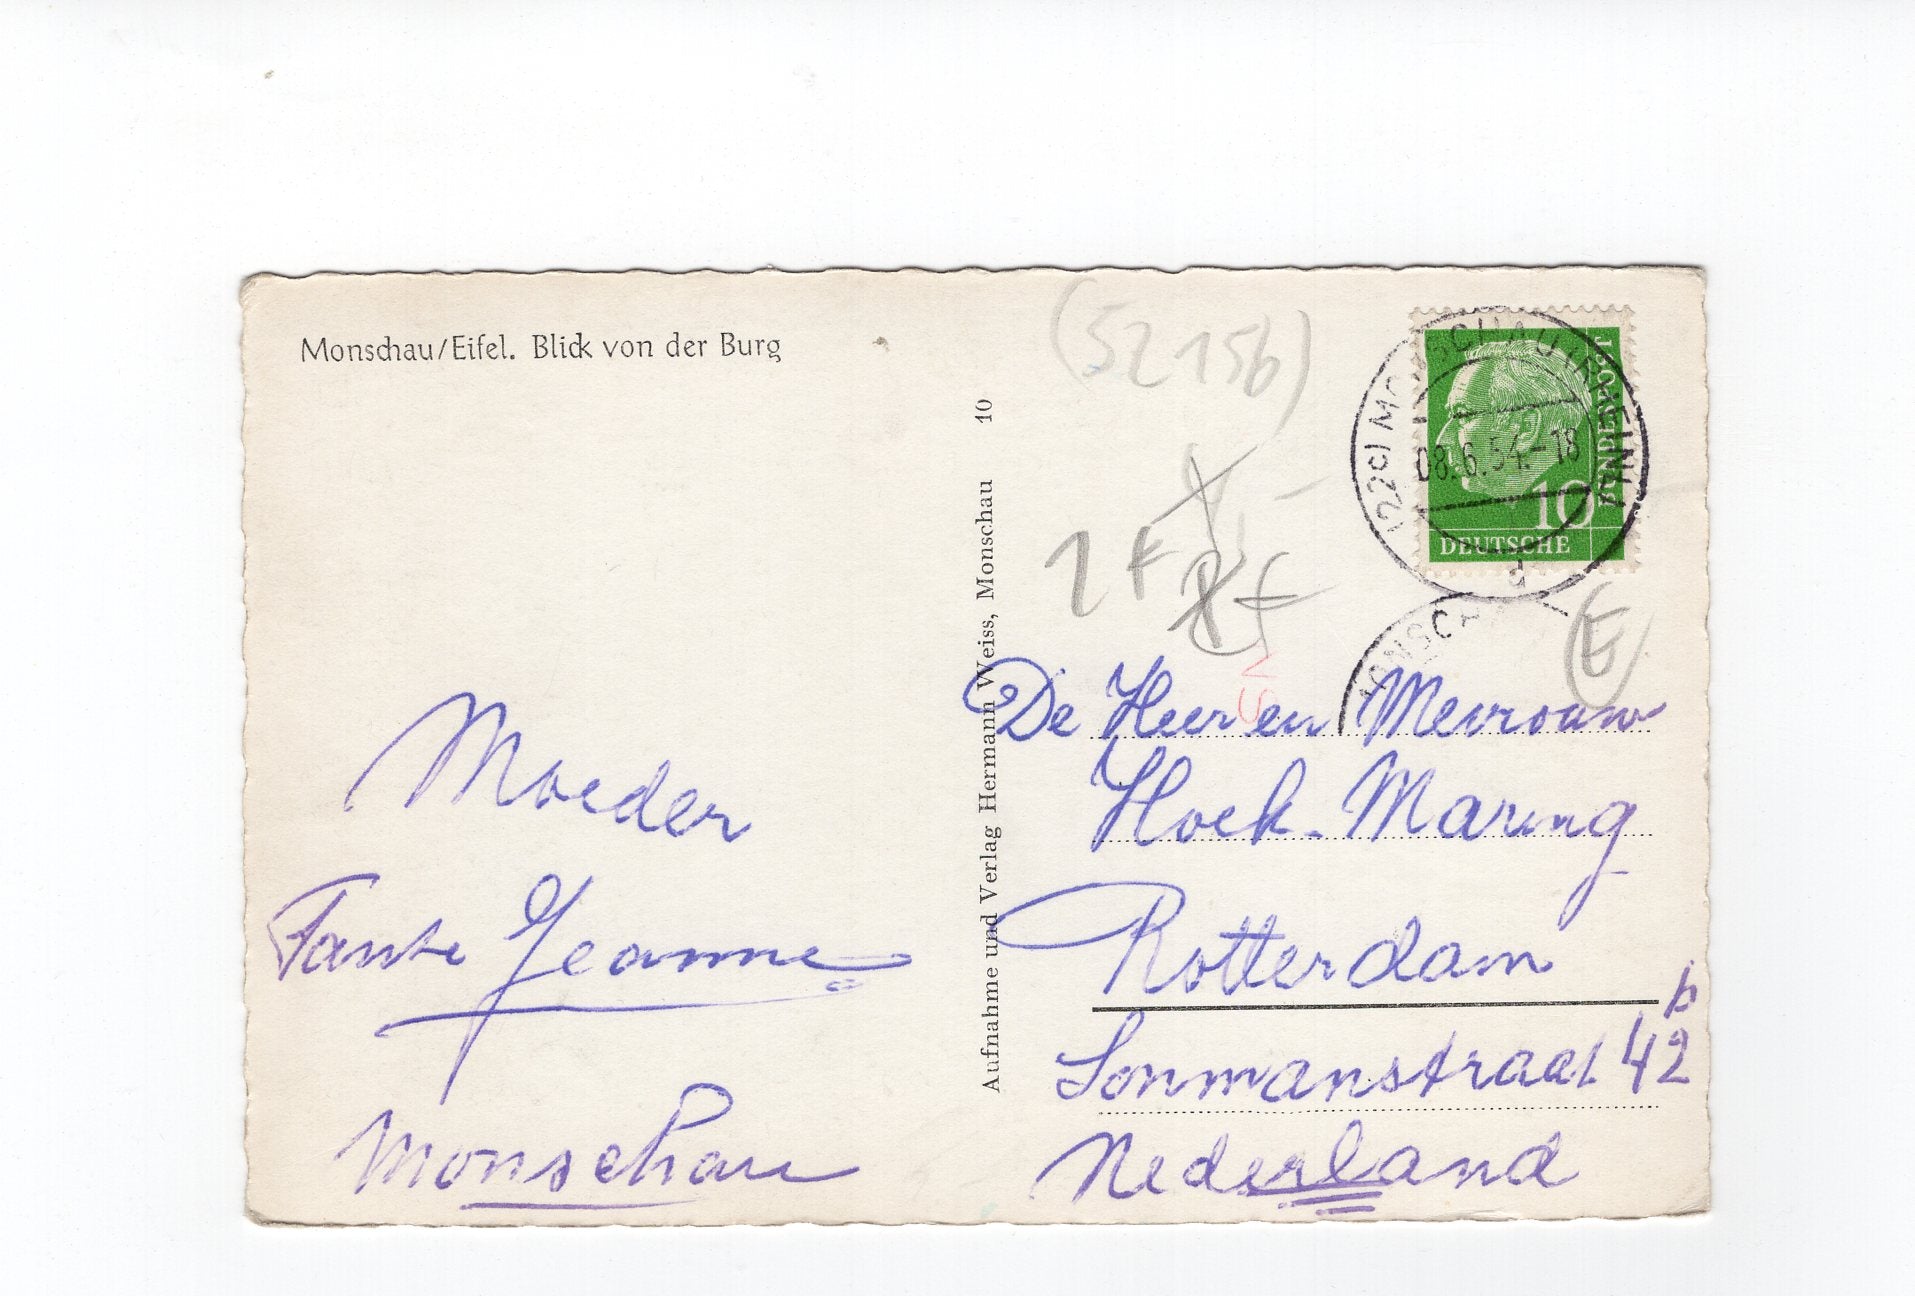 Monschau/Eifel. Blick von der Burg
Moeder
Tante Jeanne
Monschau
Aufnahme und Verlag Hermann Weiss, Monschau 10
(52156)
1 F
F
E
(22c) MONSCHAU (RHEINL)
08.6.54.-18
d
DEUTSCHE
BUNDESPOST
10
MONSCHA
De Heer en Mevrouw
Hoek-Maring
Rotterdam
Sonmanstraat 42 b
Nederland